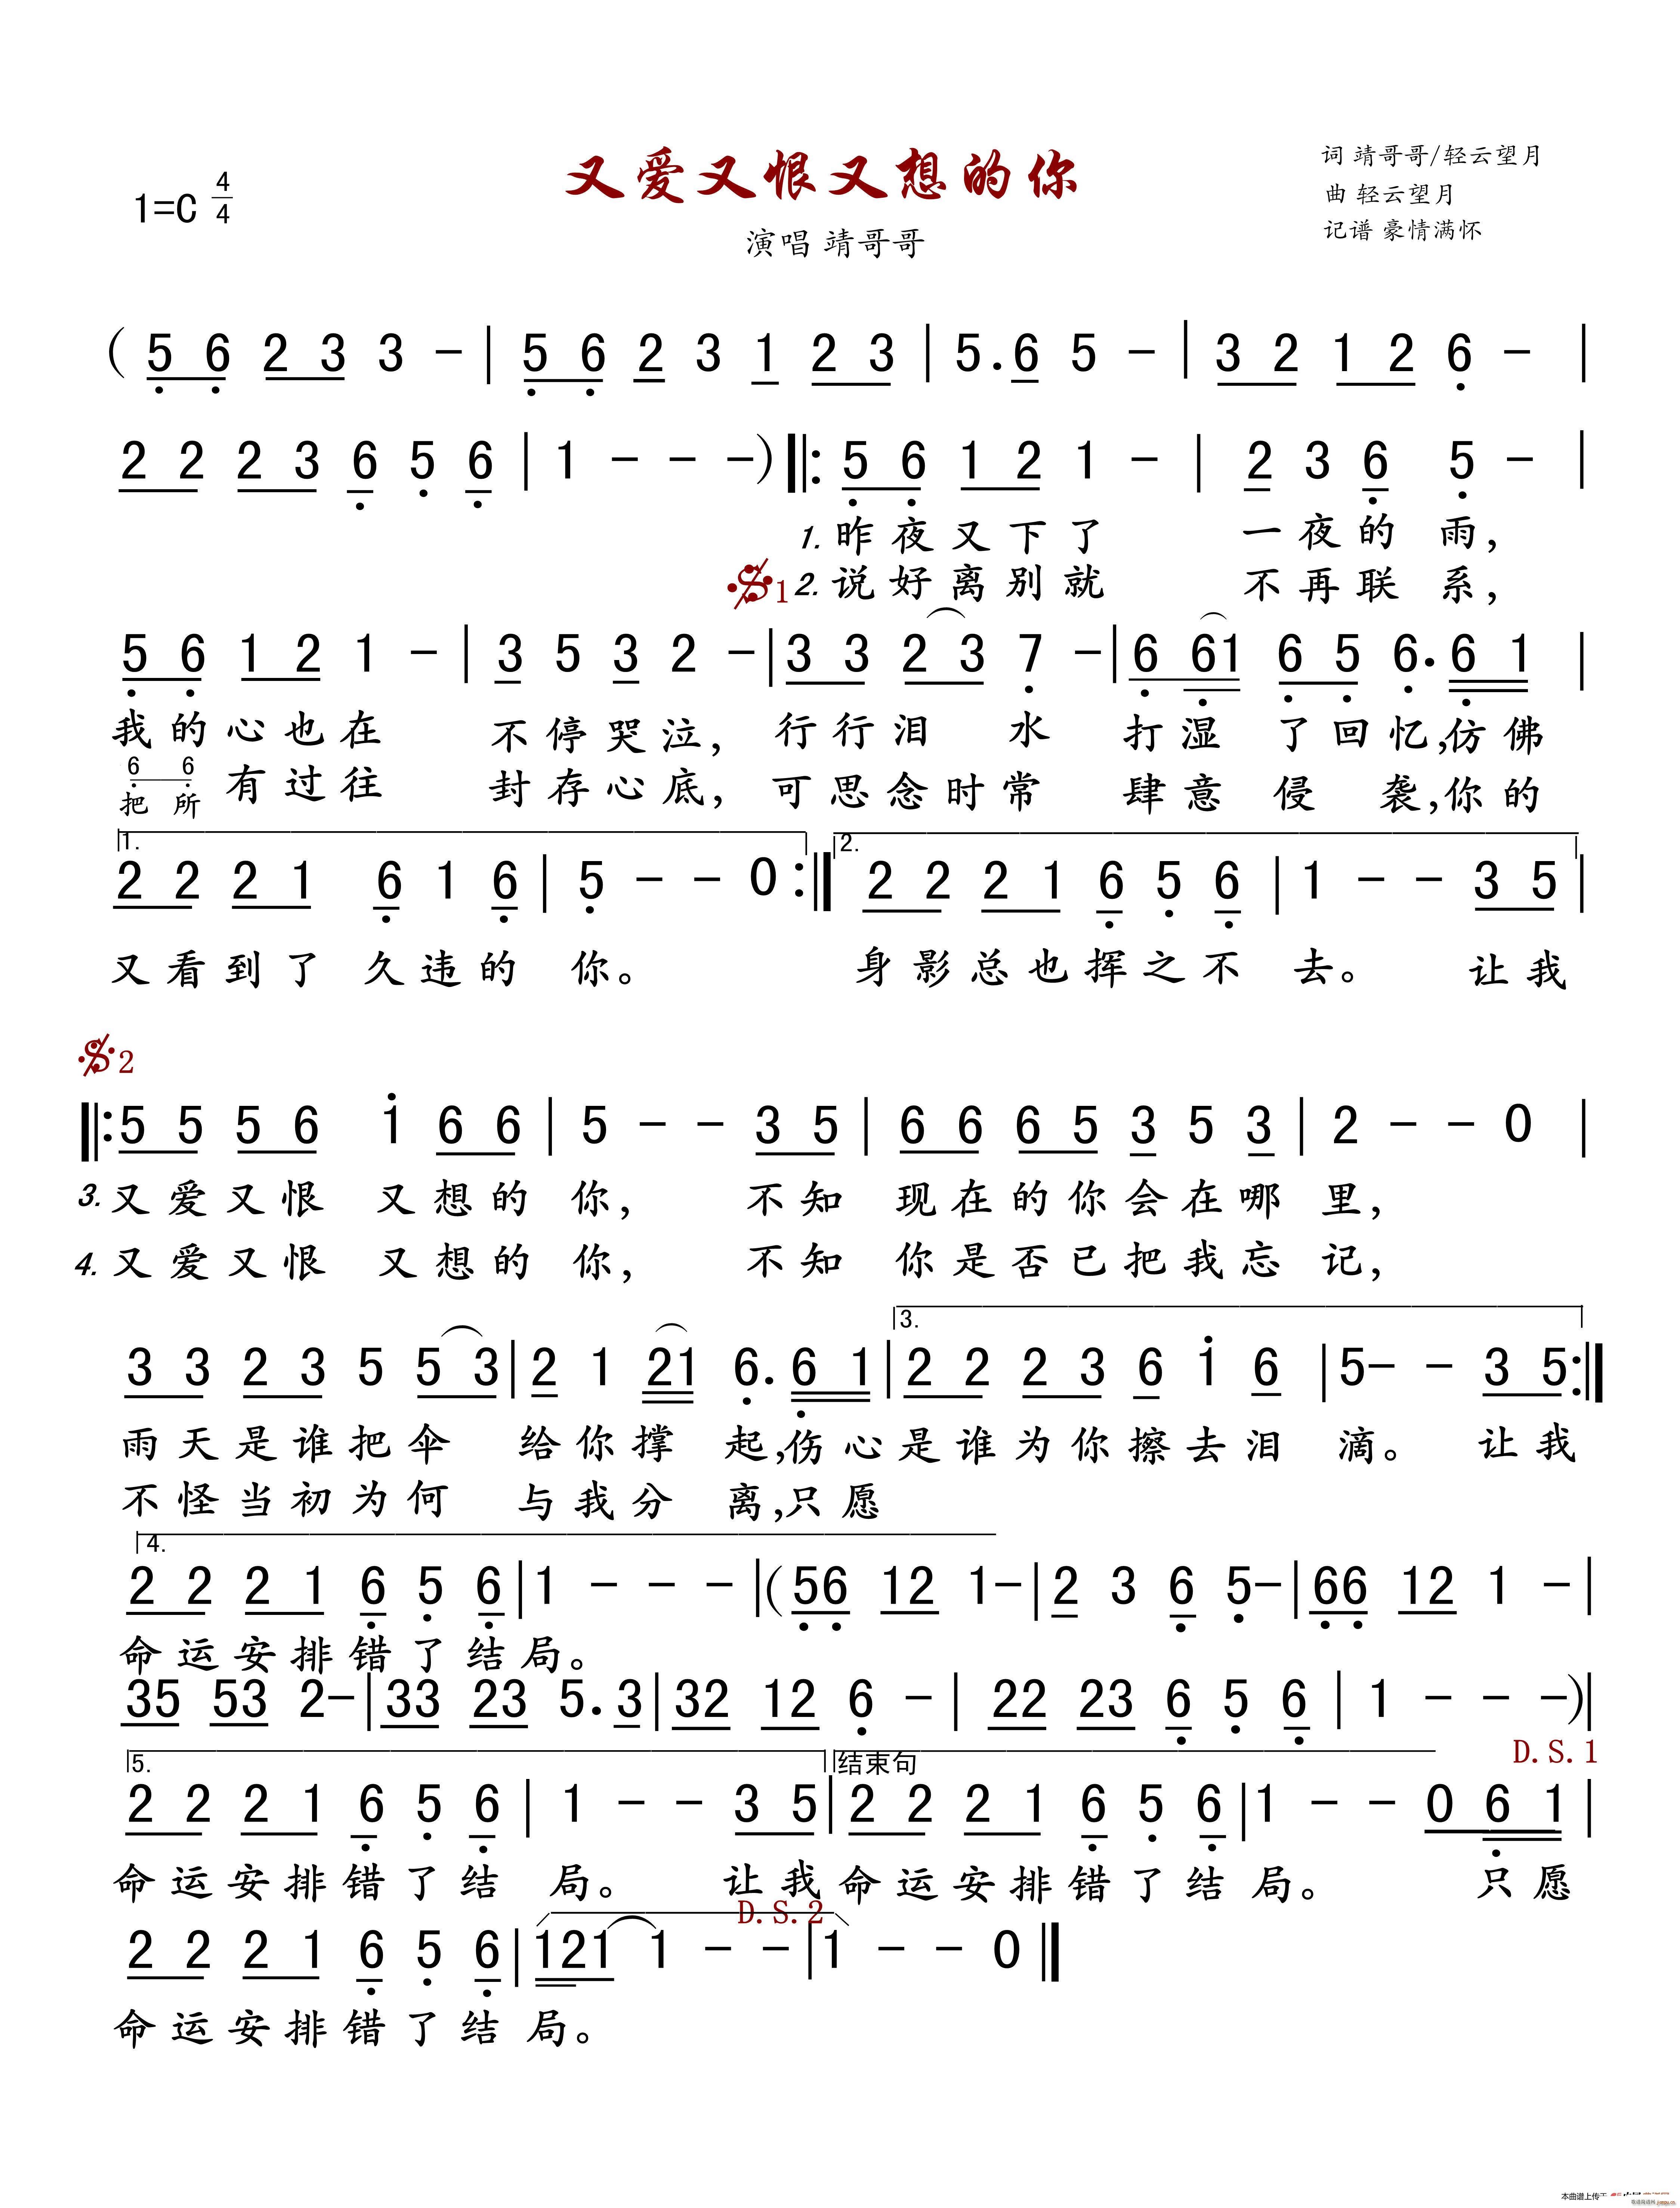 又爱又恨又想的你
1=C 4/4
演唱 靖哥哥
词 靖哥哥/轻云望月
曲 轻云望月
记谱 豪情满怀
( 5 6 2 3 3 - | 5 6 2 3 1 2 3 | 5. 6 5 - | 3 2 1 2 6 - |
2 2 2 3 6 5 6 | 1 - - -) ‖: 5 6 1 2 1 - | 2 3 6 5 - |
1. 昨夜又下了 一夜的 雨，
𝄋1 2. 说好离别就 不再联 系，
5 6 1 2 1 - | 3 5 3 2 - | 3 3 2 3 7 - | 6 61 6 5 6. 6 1 |
我的心也在 不停哭泣， 行行泪 水 打湿 了回忆，仿佛
6 6
把所有过往 封存心底， 可思念时常 肆意 侵 袭，你的
1. 2.
2 2 2 1 6 1 6 | 5 - - 0 :‖ 2 2 2 1 6 5 6 | 1 - - 3 5 |
又看到了 久违的 你。 身影总也挥之不 去。 让我
𝄋2
‖: 5 5 5 6 1 6 6 | 5 - - 3 5 | 6 6 6 5 3 5 3 | 2 - - 0 |
3. 又爱又恨 又想的 你， 不知 现在的你会在哪 里，
4. 又爱又恨 又想的 你， 不知 你是否已把我忘 记，
3.
3 3 2 3 5 5 3 | 2 1 21 6. 6 1 | 2 2 2 3 6 1 6 | 5 - - 3 5 :‖
雨天是谁把伞 给你撑 起，伤心是谁为你擦去泪 滴。 让我
不怪当初为何 与我分 离，只愿
4.
2 2 2 1 6 5 6 | 1 - - - | (56 12 1- | 2 3 6 5- | 66 12 1 - |
命运安排错了结局。
35 53 2- | 33 23 5. 3 | 32 12 6 - | 22 23 6 5 6 | 1 - - -) |
D.S.1
5. 结束句
2 2 2 1 6 5 6 | 1 - - 3 5 | 2 2 2 1 6 5 6 | 1 - - 0 6 1 |
命运安排错了结 局。 让我 命运安排错了结 局。 只愿
D.S.2
2 2 2 1 6 5 6 | 121 1 - - | 1 - - 0 ‖
命运安排错了结 局。
本曲谱上传于